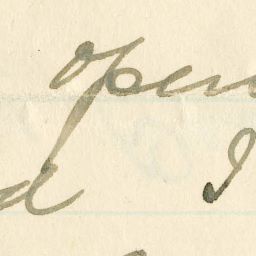 open
d I